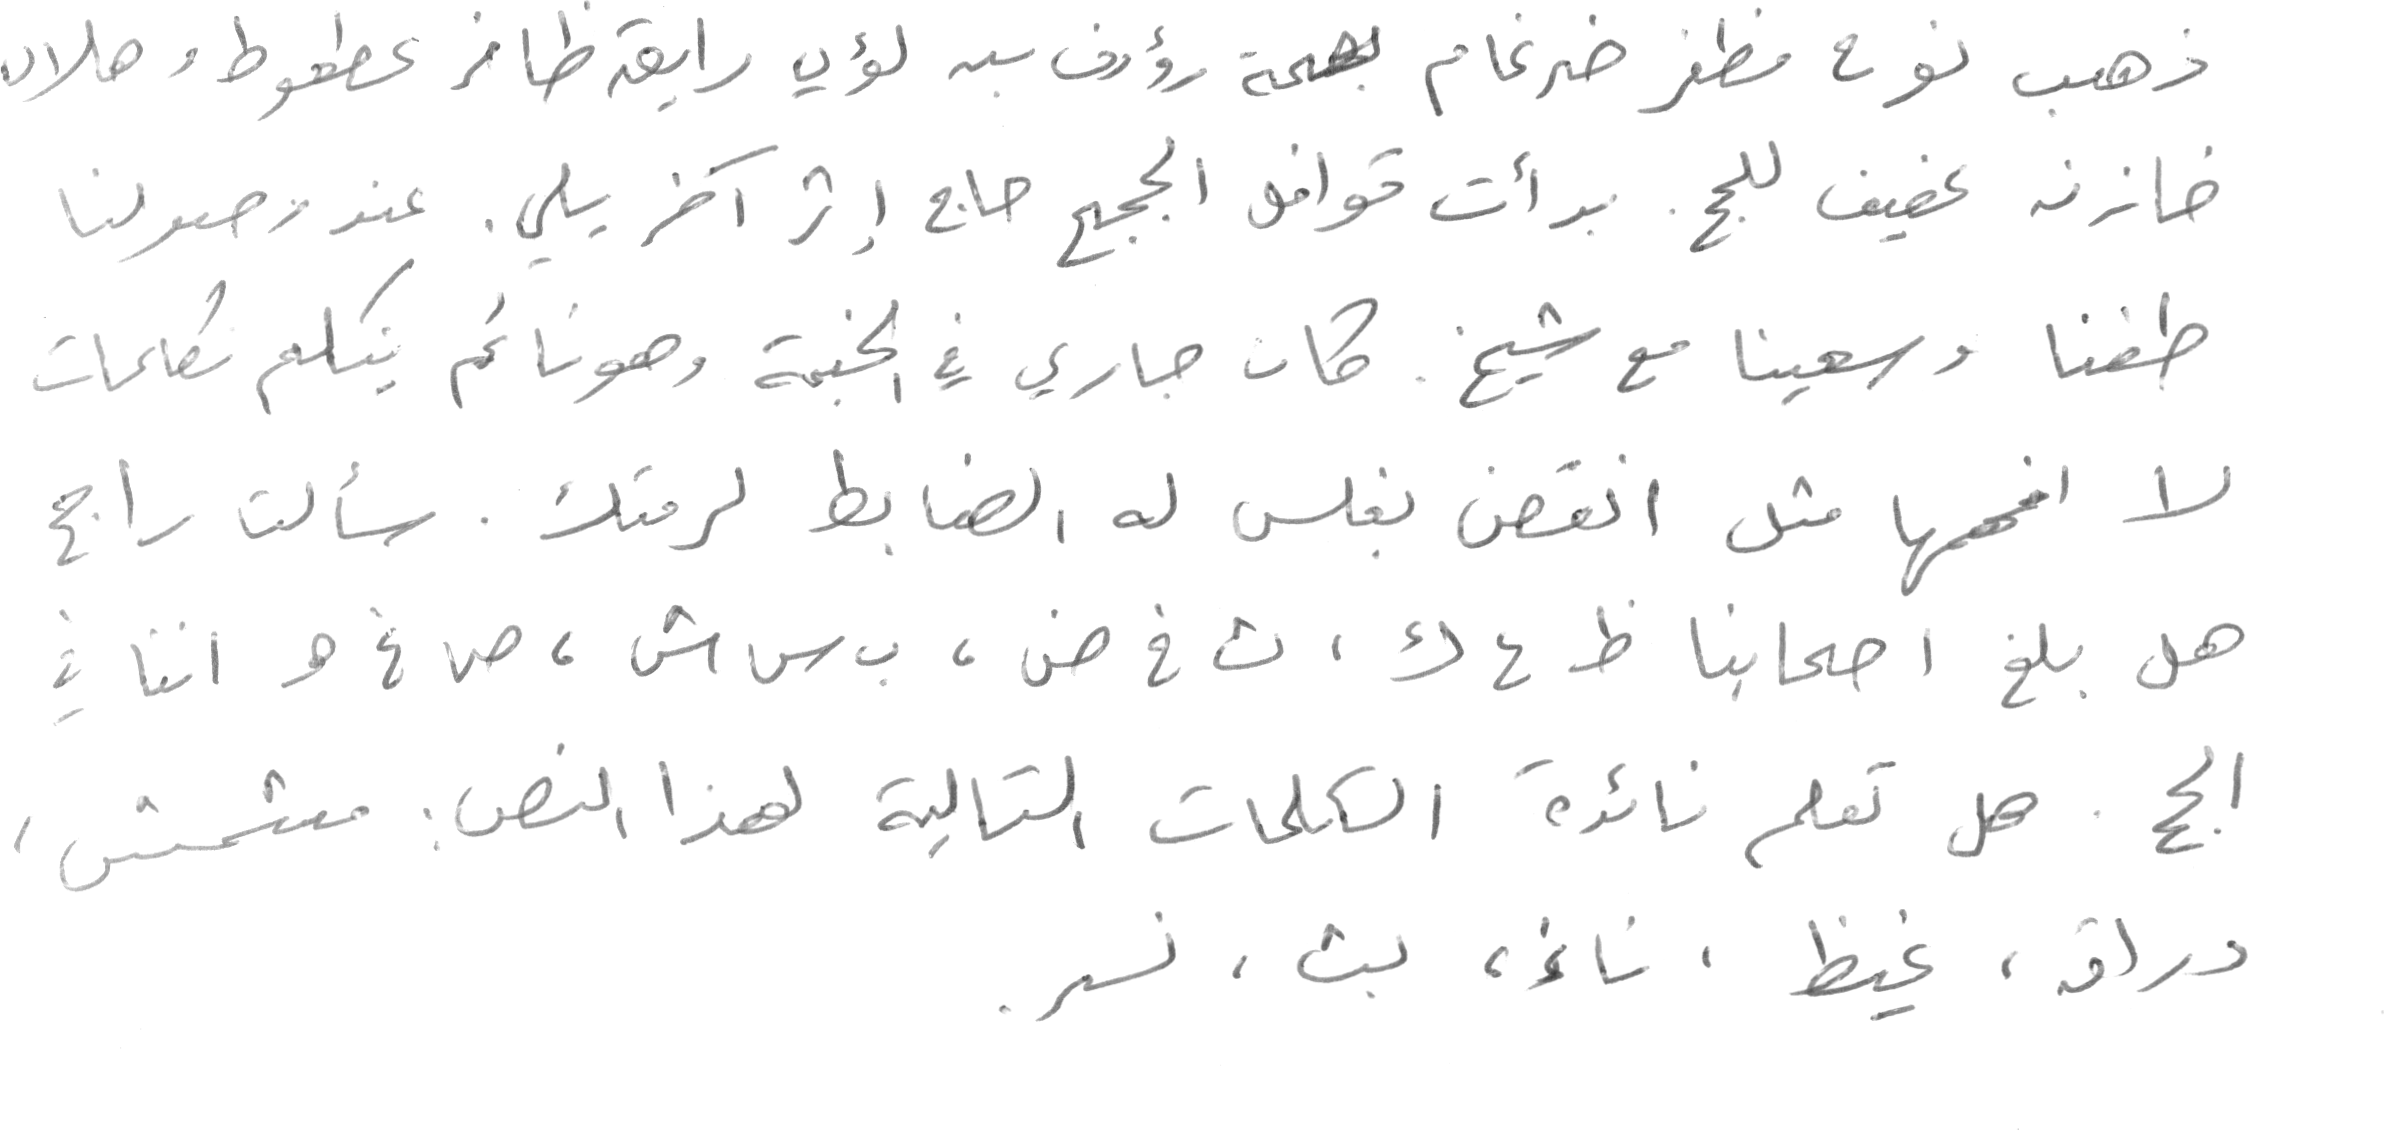 ذهب نوح مظفر ضرغام بصحبة رؤوف بن لؤي رايق ظافر عطعوط و هلال
خازن عفيف للحج. بدأت قوافل الحجيج حاج إثر آخر يلبي. عند وصولنا
طفنا وسعينا مع شيخ. كان جاري في الخيمة وهو نائم يتكلم بكلمات
لا افهمها مثل انقض بغلس له الضابط لرمتك. سألت راجح
هل بلغ اصحابنا ظ ع ك، ث غ ض، ب س ش، ص غ و اننا في
الحج. هل تعلم فائدة الكلمات التالية لهذا النص: مشمش،
دراق، غيظ، ناء، بث، نسر.